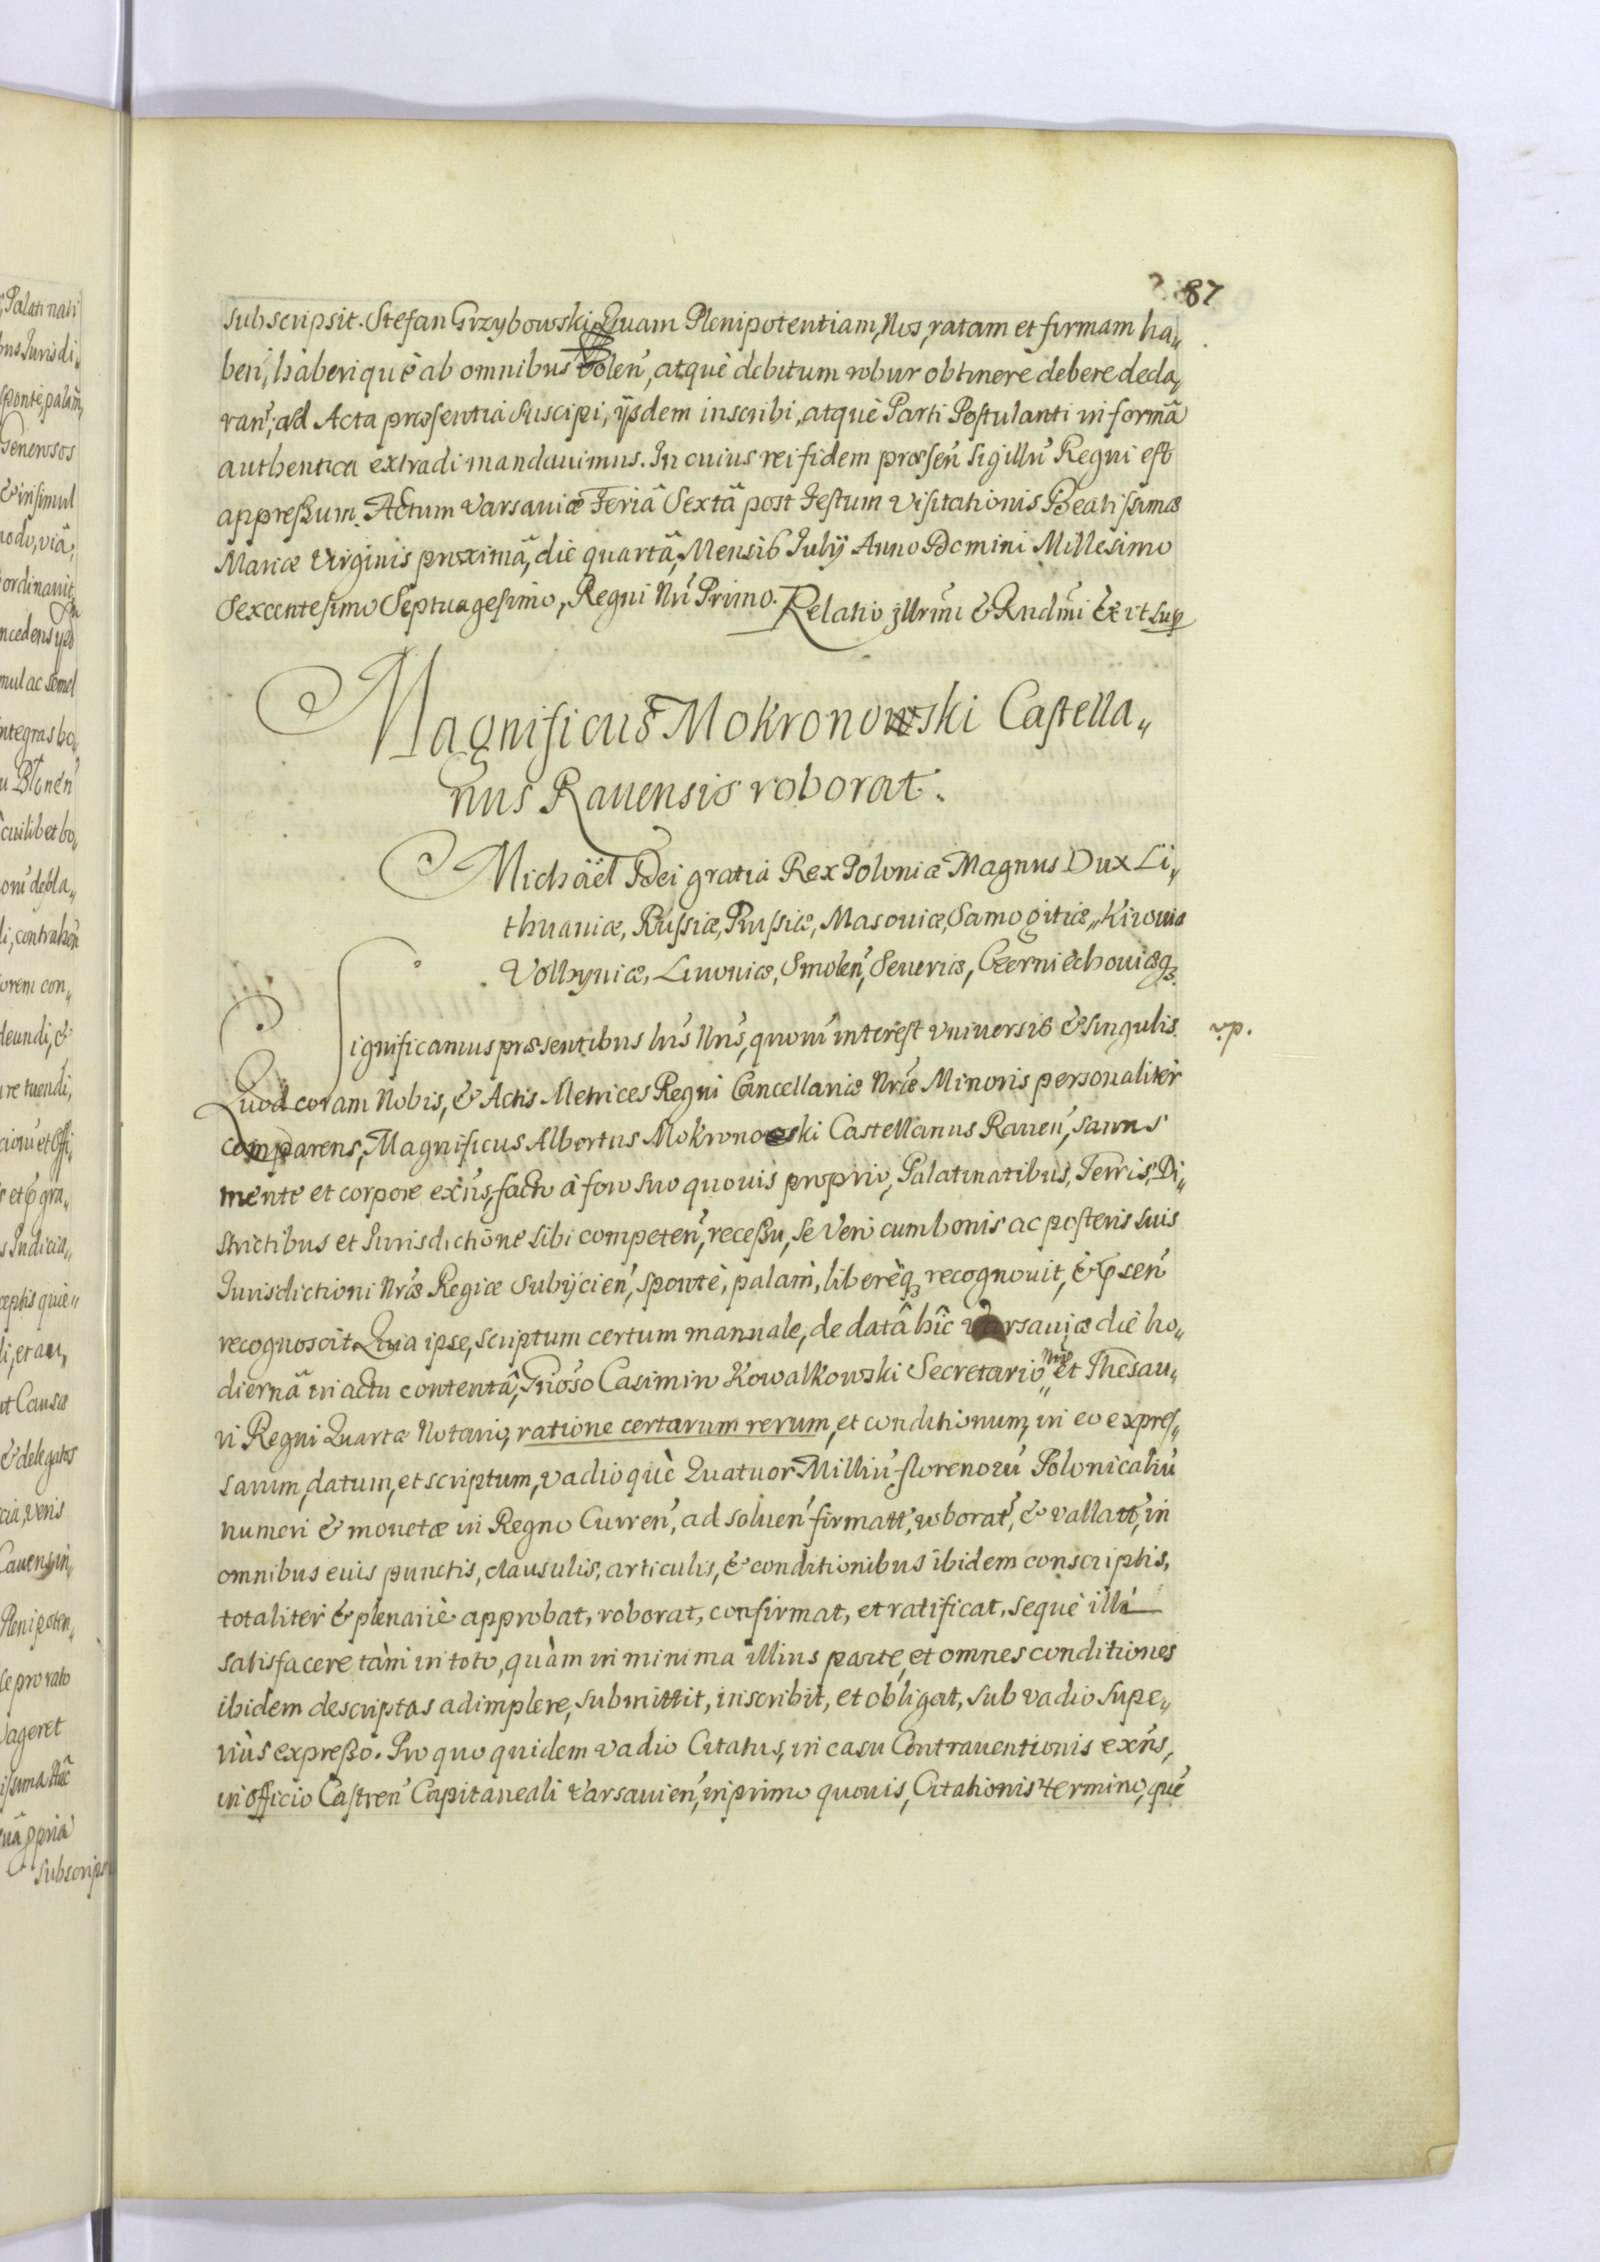 87
subscripsit. Stefan Grzybowski. Quam Plenipotentiam, Nos, ratam et firmam ha„
ben̄, haberiquè ab omnibus volen̄, atquè debitum robur obtinere debere decla„
ran̄, ad Acta præsentia suscipi, ijsdem inscribi, atquè Parti Postulanti in formâ
authentica extradi mandauimus. In cuius rei fidem præsen̄ Sigillū Regni est
appressum. Actum Varsauiæ Feriâ Sextâ post Festum Visitationis Beatissimæ
Mariæ Virginis proximâ, die quartâ, Mensis Iulij Anno Domini Millesimo
Sexcentesimo Septuagesimo, Regni Nri Primo. Relatio Illrm̄i & Rndm̄i & ut sup
Magnificus Mokronowski Castella„
nus Rauensis roborat.
Michäel Dei gratia Rex Poloniæ Magnus Dux Li„
thuaniæ, Russiæ, Prussiæ, Masouiæ, Samogitiæ, Kiiouiæ
Volhyniæ, Liuoniæ, Smolen̄, Seueriæ, Czerniechouiæq3
Significamus præsentibus lris Nris, quorū interest vniuersis & singulis
vp.
Quod coram Nobis, & Actis Metrices Regni Cancellariæ Nræ Minoris personalitèr
comparens, Magnificus Albertus Mokronowski Castellanus Rauen̄, sanus
mente et corpore exn̄s, facto à foro suo quouis proprio, Palatinatibus, Terris, Di„
strictibus et Iurisdictione sibi competen̄, recessu, se verò cum bonis ac posteris suis
Iurisdictioni Nræ Regiæ subijcien̄, spontè, palàm, liberèq3 recognouit, & p̱sen̄
recognoscit. Quia ipse, scriptum certum manuale, de datâ hîc Varsauiæ die ho„
diernâ in actu contentâ, Gnoso Casimiro Kowalkowski Secretario Nrō et Thesau„
ri Regni Quartæ Notario, ratione certarum rerum, et conditionum, in eo expres„
sarum, datum, et scriptum, vadioquè Quatuor Milliū florenorū Polonicaliū
numeri & monetæ in Regno Curren̄, ad soluen̄ firmatt, roborat̄, & vallatt, in
omnibus euis punctis, clausulis, articulis, & conditionibus ibidem conscriptis,
totaliter & plenariè approbat, roborat, confirmat, et ratificat, sequè illi
satisfacere tàm in toto, quàm in minima illius parte, et omnes conditiones
ibidem descriptas adimplere, submittit, inscribit, et obligat, sub vadio supe„
riùs expresso. Pro quo quidem vadio Citatus, in casu Contrauentionis exn̄s,
in officio Castren̄ Capitaneali Varsauien̄, in primo quouis, Citationis termino, què